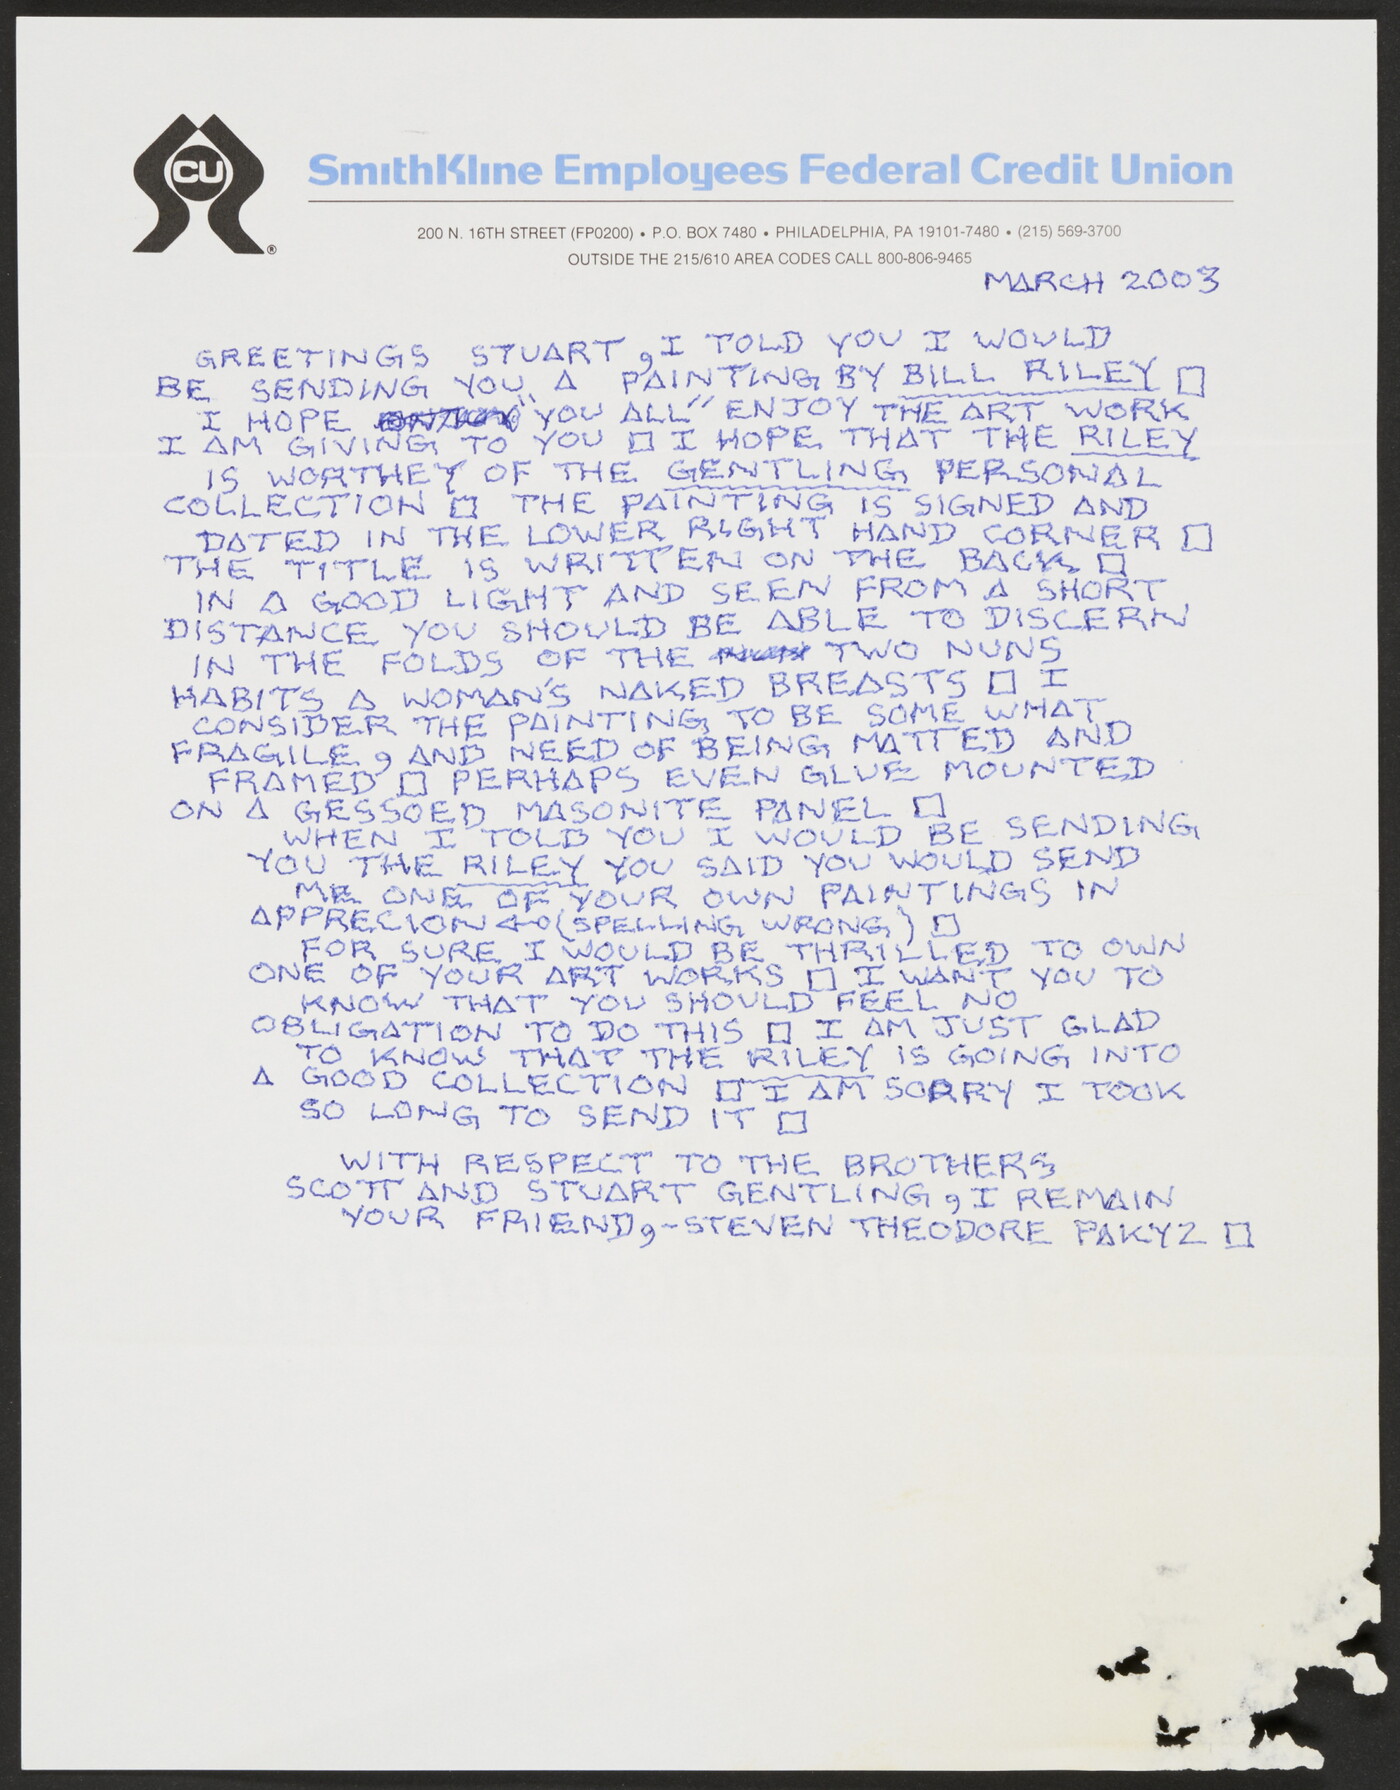 CU
®
SmithKline Employees Federal Credit Union
200 N. 16TH STREET (FP0200) • P.O. BOX 7480 • PHILADELPHIA, PA 19101-7480 • (215) 569-3700
OUTSIDE THE 215/610 AREA CODES CALL 800-806-9465
MARCH 2003
GREETINGS STUART, I TOLD YOU I WOULD
BE SENDING YOU A PAINTING BY BILL RILEY □
I HOPE "YOU ALL" ENJOY THE ART WORK
I AM GIVING TO YOU □ I HOPE THAT THE RILEY
IS WORTHEY OF THE GENTLING PERSONAL
COLLECTION □ THE PAINTING IS SIGNED AND
DATED IN THE LOWER RIGHT HAND CORNER □
THE TITLE IS WRITTEN ON THE BACK □
IN A GOOD LIGHT AND SEEN FROM A SHORT
DISTANCE YOU SHOULD BE ABLE TO DISCERN
IN THE FOLDS OF THE TWO NUNS
HABITS A WOMAN'S NAKED BREASTS □ I
CONSIDER THE PAINTING TO BE SOME WHAT
FRAGILE, AND NEED OF BEING MATTED AND
FRAMED □ PERHAPS EVEN GLUE MOUNTED
ON A GESSOED MASONITE PANEL □
WHEN I TOLD YOU I WOULD BE SENDING
YOU THE RILEY YOU SAID YOU WOULD SEND
ME ONE OF YOUR OWN PAINTINGS IN
APPRECION (SPELLING WRONG) □
FOR SURE I WOULD BE THRILLED TO OWN
ONE OF YOUR ART WORKS □ I WANT YOU TO
KNOW THAT YOU SHOULD FEEL NO
OBLIGATION TO DO THIS □ I AM JUST GLAD
TO KNOW THAT THE RILEY IS GOING INTO
A GOOD COLLECTION □ I AM SORRY I TOOK
SO LONG TO SEND IT □
WITH RESPECT TO THE BROTHERS
SCOTT AND STUART GENTLING, I REMAIN
YOUR FRIEND, -STEVEN THEODORE PAKYZ □